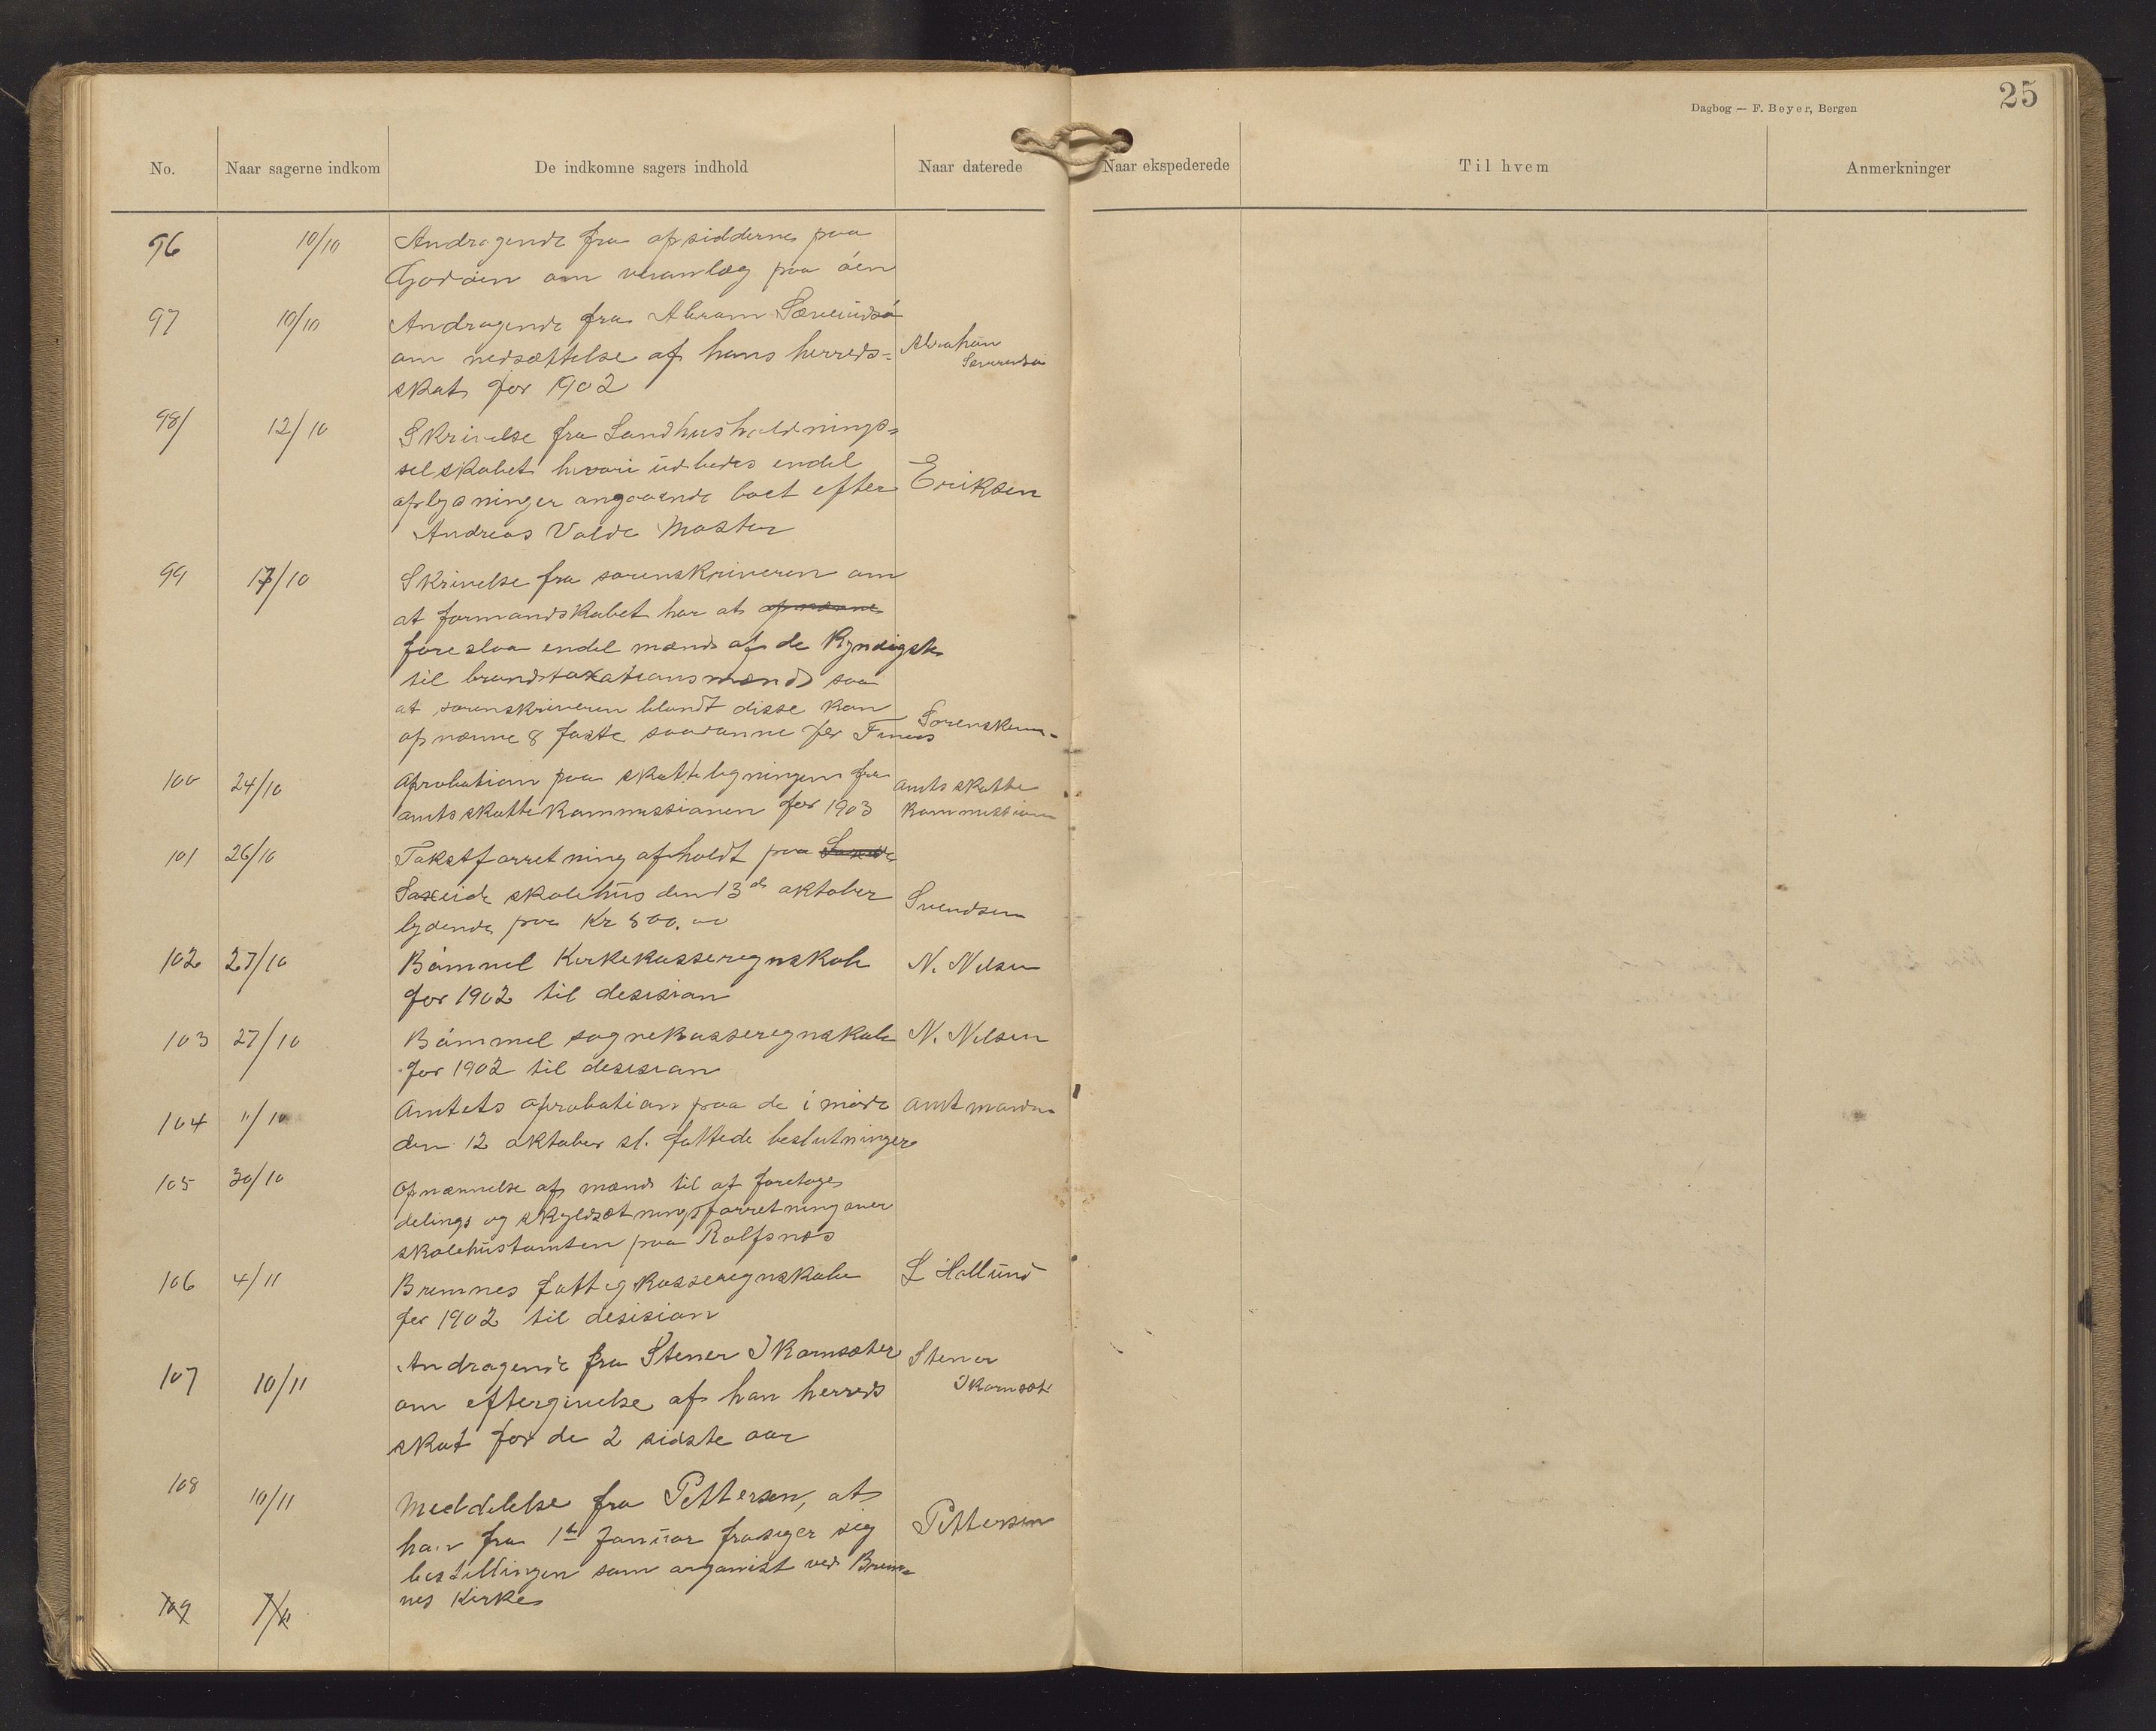 Dagbog — F. Beyer, Bergen
25
No. Naar sagerne indkom De indkomne sagers indhold Naar daterede Naar ekspederede Til hvem Anmerkninger
96 10/10 Andragende fra opsidderne paa
om paa øen
97 10/10 Andragende fra Abram
om nedsættelse af hans herreds=
skat for 1902
98/ 12/10 Skrivelse fra Landhusholdnings=
selskabet hvori udbedes endel
oplysninger angaaende boet efter Eriksen
Andreas Volde Moster
99 17/10 Skrivelse fra sorenskriveren om
at formandskabet har at opnævne
foreslaa endel mænd af de kyndigste
til brandtaxationsmænd saa
at sorenskriveren blandt disse kan
opnævne 8 faste saadanne for Finnes
100 24/10 Aprobation paa skatteligningen fra amtsskatte
amtsskattekommissionen for 1903 kommission
101 26/10 Takstforretning afholdt paa
Saxeide skolehus den 13de oktober Svendsen
lydende paa Kr 800.00
102 27/10 Bømmel Kirkekasseregnskab N. Nilsen
for 1902 til desision
103 27/10 Bømmel sognekasseregnskab N. Nilsen
for 1902 til desision
104 11/10 Amtets aprobation paa de i møde amtmanden
den 12 oktober sl. fattede beslutninger
105 30/10 Opnævnelse af mænd til at foretage
delings og skyldsætningsforretning over
skolehustomten paa Rolfsnes
106 4/11 Bremnes fattigkasseregnskab L Hallund
for 1902 til desision
107 10/11 Andragende fra Stener Skarnsæter Stener
om eftergivelse af han herreds
skat for de 2 sidste aar
108 10/11 Meddelelse fra Pettersen, at
han fra 1st Januar frasiger sig Pettersen
bestillingen som organist ved Brem=
nes Kirke
109 7/11